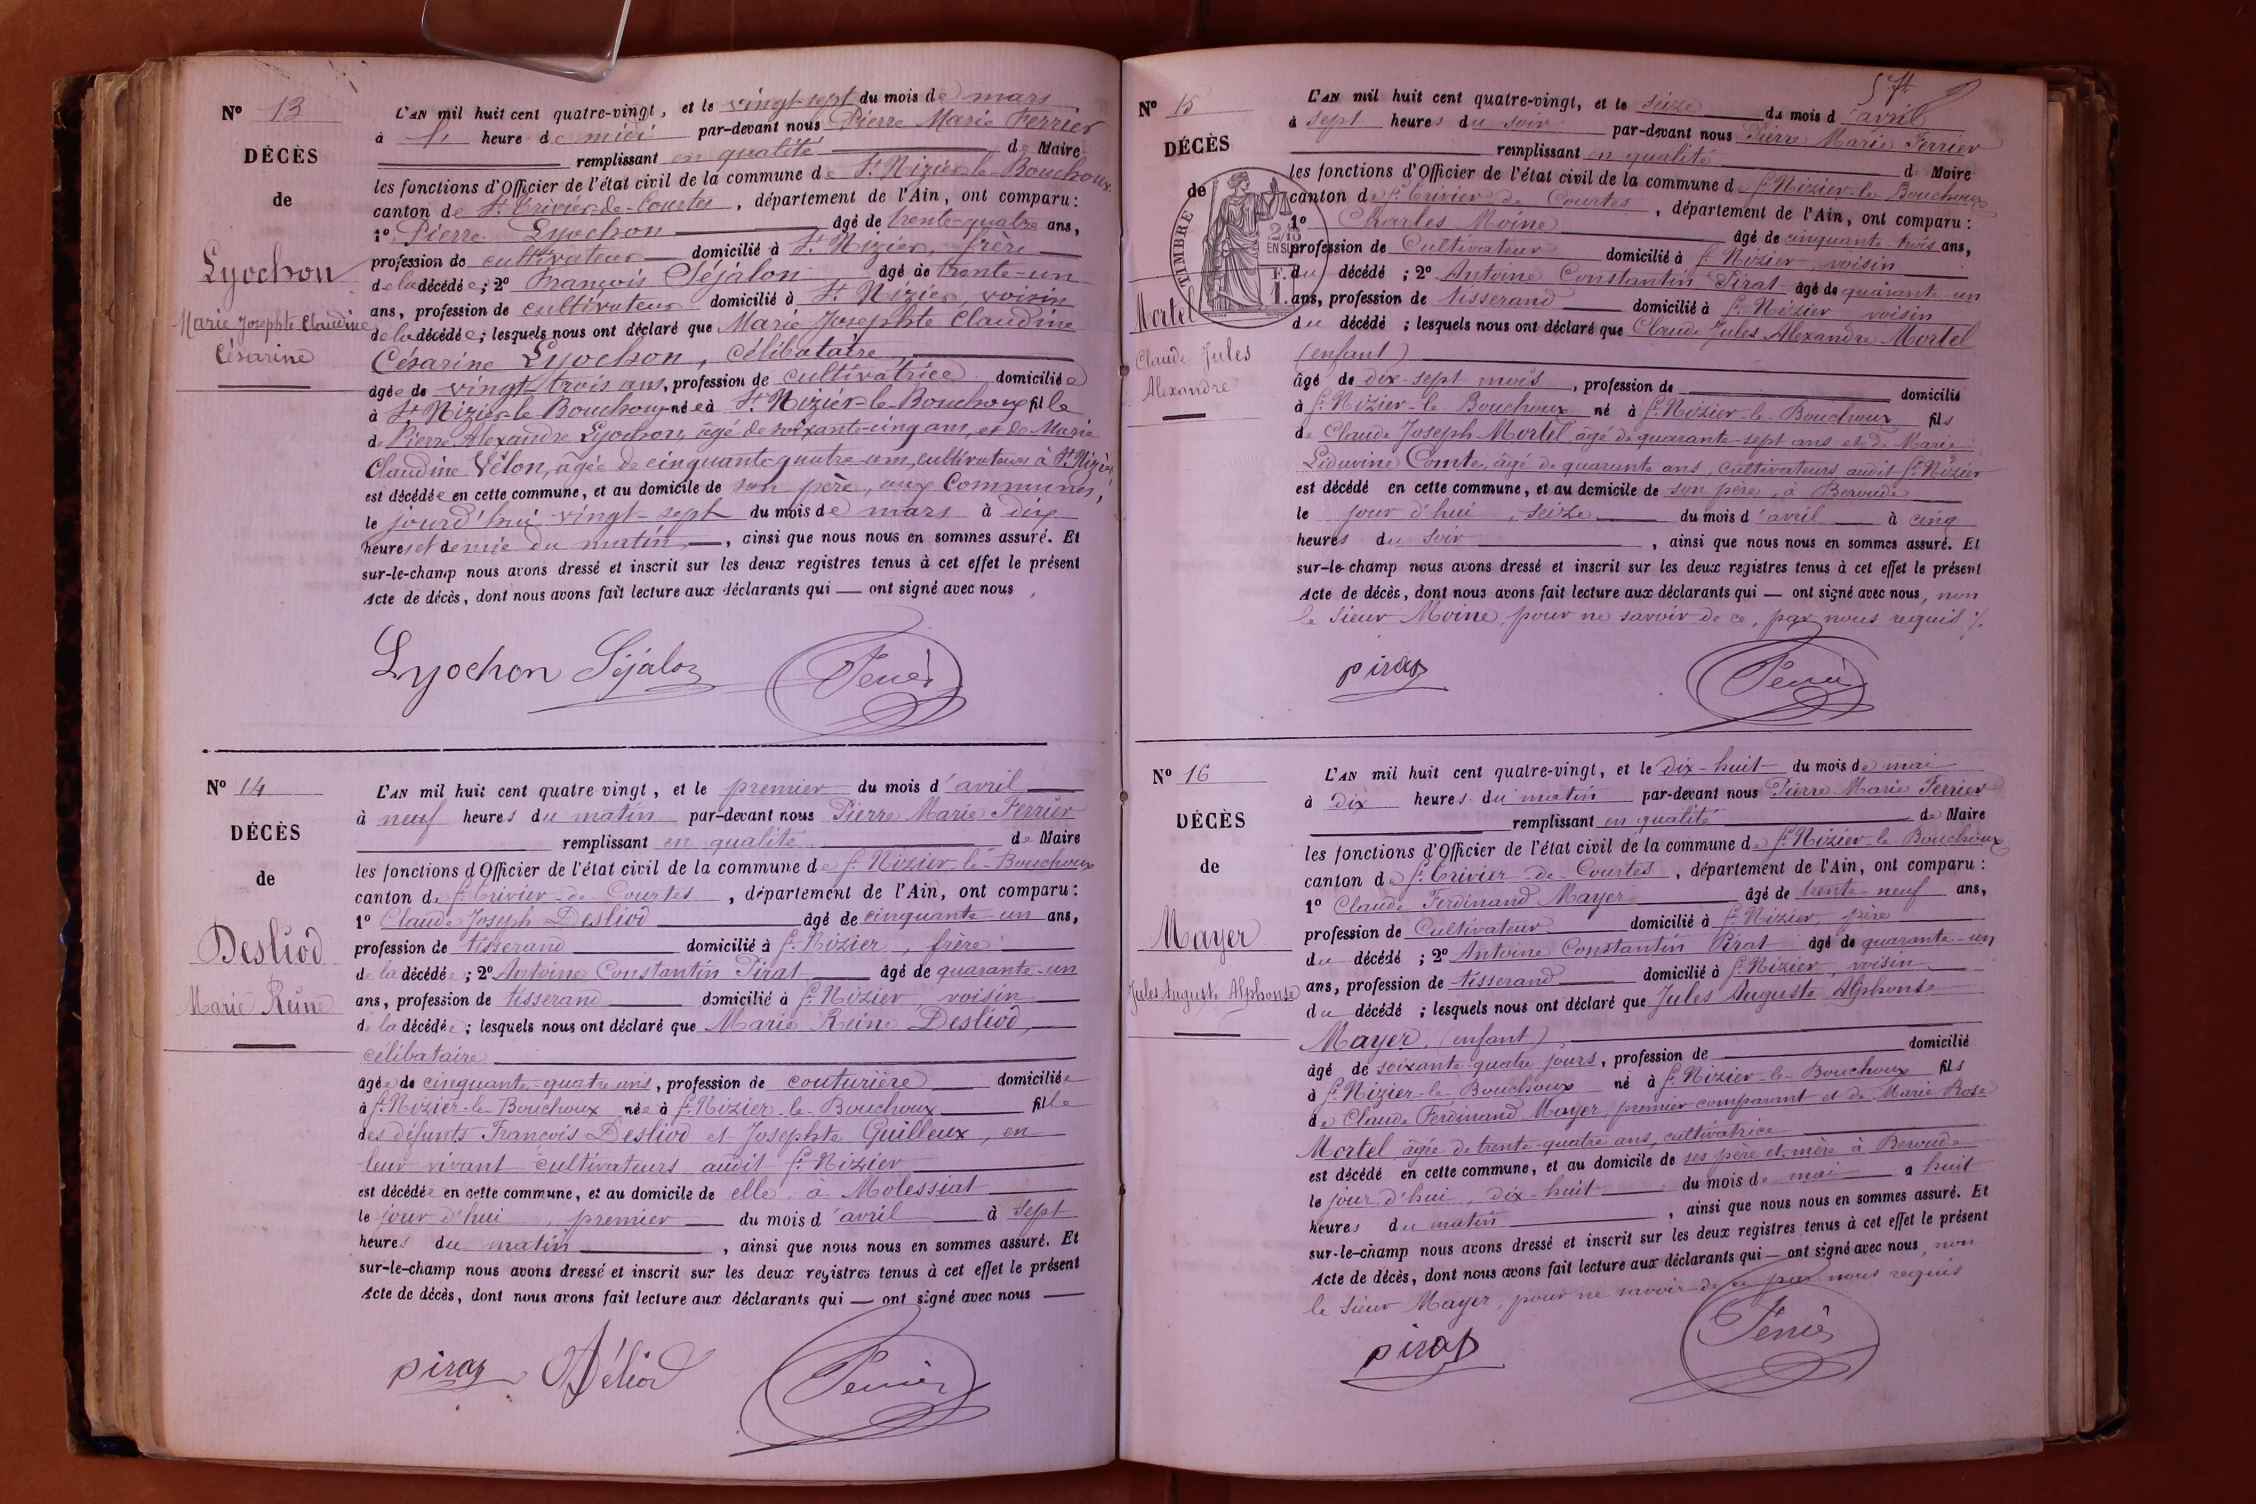 N° 13
DÉCÈS
de
Lyochon
Marie Josephte Claudine
Césarine
L'AN mil huit cent quatre-vingt, et le vingt-sept du mois de mars
à heure de midi par-devant nous Pierre Marie Ferrier
remplissant en qualité de Maire
les fonctions d'Officier de l'état civil de la commune de St Nizier-le-Bouchoux
canton de St Trivier-de-Courtes, département de l'Ain, ont comparu:
1° Pierre Lyochon âgé de trente-quatre ans,
profession de cultivateur domicilié à St Nizier, frère
de la décédée; 2° François Séjalon âgé de trente-un
ans, profession de cultivateur domicilié à St Nizier, voisin
de la décédée; lesquels nous ont déclaré que Marie Josephte Claudine
Césarine Lyochon, célibataire,
âgée de vingt trois ans, profession de cultivatrice domiciliée
à St Nizier-le-Bouchoux née à St Nizier-le-Bouchoux fille
de Pierre Alexandre Lyochon, âgé de soixante-cinq ans, et de Marie
Claudine Vélon, âgée de cinquante-quatre ans, cultivateurs à St Nizier
est décédée en cette commune, et au domicile de son père, aux Communes,
le jourd'hui vingt-sept du mois de mars à dix
heures et demie du matin, ainsi que nous nous en sommes assuré. Et
sur-le-champ nous avons dressé et inscrit sur les deux registres tenus à cet effet le présent
Acte de décès, dont nous avons fait lecture aux déclarants qui — ont signé avec nous,
Lyochon Séjalon Ferrier
N° 14
DÉCÈS
de
Desliod
Marie Reine
L'AN mil huit cent quatre-vingt, et le premier du mois d'avril
à neuf heures du matin par-devant nous Pierre Marie Ferrier
remplissant en qualité de Maire
les fonctions d'Officier de l'état civil de la commune de St Nizier-le-Bouchoux
canton de St Trivier-de-Courtes, département de l'Ain, ont comparu:
1° Claude Joseph Desliod âgé de cinquante-un ans,
profession de tisserand domicilié à St Nizier, frère
de la décédée; 2° Antoine Constantin Pirat âgé de quarante-un
ans, profession de tisserand domicilié à St Nizier voisin
de la décédée; lesquels nous ont déclaré que Marie Reine Desliod,
célibataire
âgée de cinquante-quatre ans, profession de couturière domiciliée
à St Nizier-le-Bouchoux née à St Nizier-le-Bouchoux fille
des défunts François Desliod et Josephte Guilleux, en
leur vivant cultivateurs audit St Nizier
est décédée en cette commune, et au domicile de elle, à Molessiat
le jour d'hui, premier du mois d'avril à sept
heures du matin, ainsi que nous nous en sommes assuré. Et
sur-le-champ nous avons dressé et inscrit sur les deux registres tenus à cet effet le présent
Acte de décès, dont nous avons fait lecture aux déclarants qui — ont signé avec nous
pirat Déliod Ferrier
N° 15
DÉCÈS
de
TIMBRE
2/10
EN SUS
F.
1.
Mortel
Claude Jules
Alexandre
L'AN mil huit cent quatre-vingt, et le seize du mois d'avril
à sept heures du soir par-devant nous Pierre Marie Ferrier
remplissant en qualité de Maire
les fonctions d'Officier de l'état civil de la commune de St Nizier-le-Bouchoux
canton de St Trivier de Courtes, département de l'Ain, ont comparu:
1° Charles Moine âgé de cinquante-trois ans,
profession de Cultivateur domicilié à St Nizier voisin
du décédé; 2° Antoine Constantin Pirat âgé de quarante-un
ans, profession de tisserand domicilié à St Nizier voisin
du décédé; lesquels nous ont déclaré que Claude Jules Alexandre Mortel
(enfant)
âgé de dix-sept mois, profession de domicilié
à St Nizier-le-Bouchoux né à St Nizier-le-Bouchoux fils
de Claude Joseph Mortel âgé de quarante-sept ans et de Marie
Liduvine Comte, âgé de quarante ans, cultivateurs audit St Nizier
est décédé en cette commune, et au domicile de son père, à Beroude
le jour d'hui, seize du mois d'avril à cinq
heures du soir, ainsi que nous nous en sommes assuré. Et
sur-le-champ nous avons dressé et inscrit sur les deux registres tenus à cet effet le présent
Acte de décès, dont nous avons fait lecture aux déclarants qui — ont signé avec nous, non
le sieur Moine, pour ne savoir de ce, par nous requis
pirat Ferrier
N° 16
DÉCÈS
de
Mayer
Jules Auguste Alphonse
L'AN mil huit cent quatre-vingt, et le dix-huit du mois de mai
à dix heures du matin par-devant nous Pierre Marie Ferrier
remplissant en qualité de Maire
les fonctions d'Officier de l'état civil de la commune de St Nizier-le-Bouchoux
canton de St Trivier-de-Courtes, département de l'Ain, ont comparu:
1° Claude Ferdinand Mayer âgé de trente-neuf ans,
profession de Cultivateur domicilié à St Nizier, père
du décédé; 2° Antoine Constantin Pirat âgé de quarante-un
ans, profession de tisserand domicilié à St Nizier, voisin
du décédé; lesquels nous ont déclaré que Jules Auguste Alphonse
Mayer, (enfant)
âgé de soixante-quatre jours, profession de domicilié
à St Nizier-le-Bouchoux né à St Nizier-le-Bouchoux fils
de Claude Ferdinand Mayer, premier comparant et de Marie Rose
Mortel âgée de trente-quatre ans, cultivatrice
est décédé en cette commune, et au domicile de ses père et mère à Beroude
le jour d'hui, dix-huit du mois de mai à huit
heures du matin, ainsi que nous nous en sommes assuré. Et
sur-le-champ nous avons dressé et inscrit sur les deux registres tenus à cet effet le présent
Acte de décès, dont nous avons fait lecture aux déclarants qui — ont signé avec nous, non
le sieur Mayer, pour ne savoir de ce par nous requis
pirat Ferrier